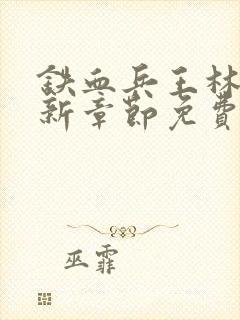 铁血兵王林
新章節免費
巫霏